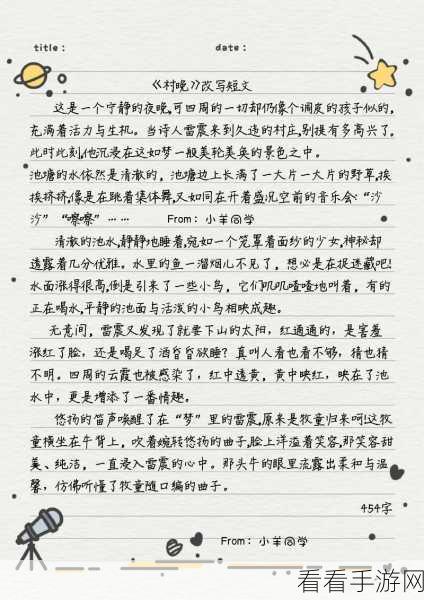 title： date：
《村晚》改写短文
这是一个宁静的夜晚,可四周的一切却仍像个调皮的孩子似的,
充满着活力与生机。当诗人雷震来到久违的村庄,别提有多高兴了,
此时此刻,他沉浸在这如梦一般美轮美奂的景色之中。
池塘的水依然是清澈的，池塘边上长满了一大片一大片的野草,挨
挨挤挤,像是在跳着集体舞,又如同在开着盛况空前的音乐会:“沙
沙”“嚓嚓”…… From：小羊同学
清澈的池水,静静地睡着,宛如一个笼罩着面纱的少女,神秘却
透露着几分优雅。水里的鱼一溜烟儿不见了，想必是在捉迷藏吧!
水面涨得很高,倒是引来了一些小鸟，它们叽叽喳喳地叫着，有的
正在喝水,平静的池面与活泼的小鸟相映成趣。
无意间，雷震又发现了就要下山的太阳，红通通的，是害羞
涨红了脸，还是喝足了酒昏昏欲睡？真叫人看也看不够，猜也猜
不明。四周的云霞也被感染了，红中透黄，黄中映红，映在了池
水中，更是增添了一番情趣。
悠扬的笛声唤醒了在“梦”里的雷震,原来是牧童归来呵!这牧
童横坐在牛背上，吹着婉转悠扬的曲子,脸上洋溢着笑容,那笑容甜
美、纯洁，一直浸入雷震的心中。那头牛的眼里流露出柔和与温
馨，仿佛听懂了牧童随口编的曲子。
454字
From：小羊同学
看看手游网